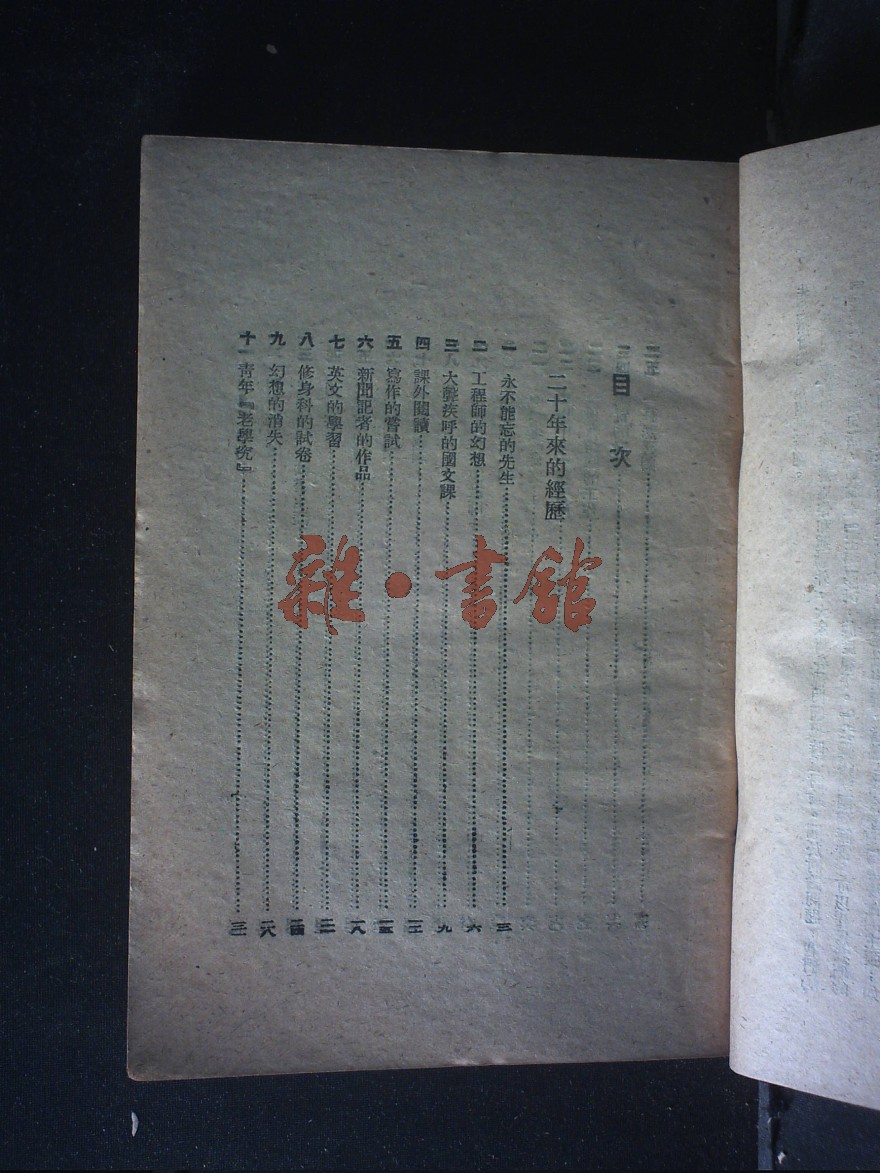 目次
二十年來的經歷
一 永不能忘的先生……三
二 工程師的幻想……六
三 大聲疾呼的國文課……九
四 課外閱讀……一二
五 寫作的嘗試……一五
六 新聞記者的作品……一八
七 英文的學習……二一
八 修身科的試卷……二四
九 幻想的消失……二八
十 青年『老學究』……三一
雜·書館